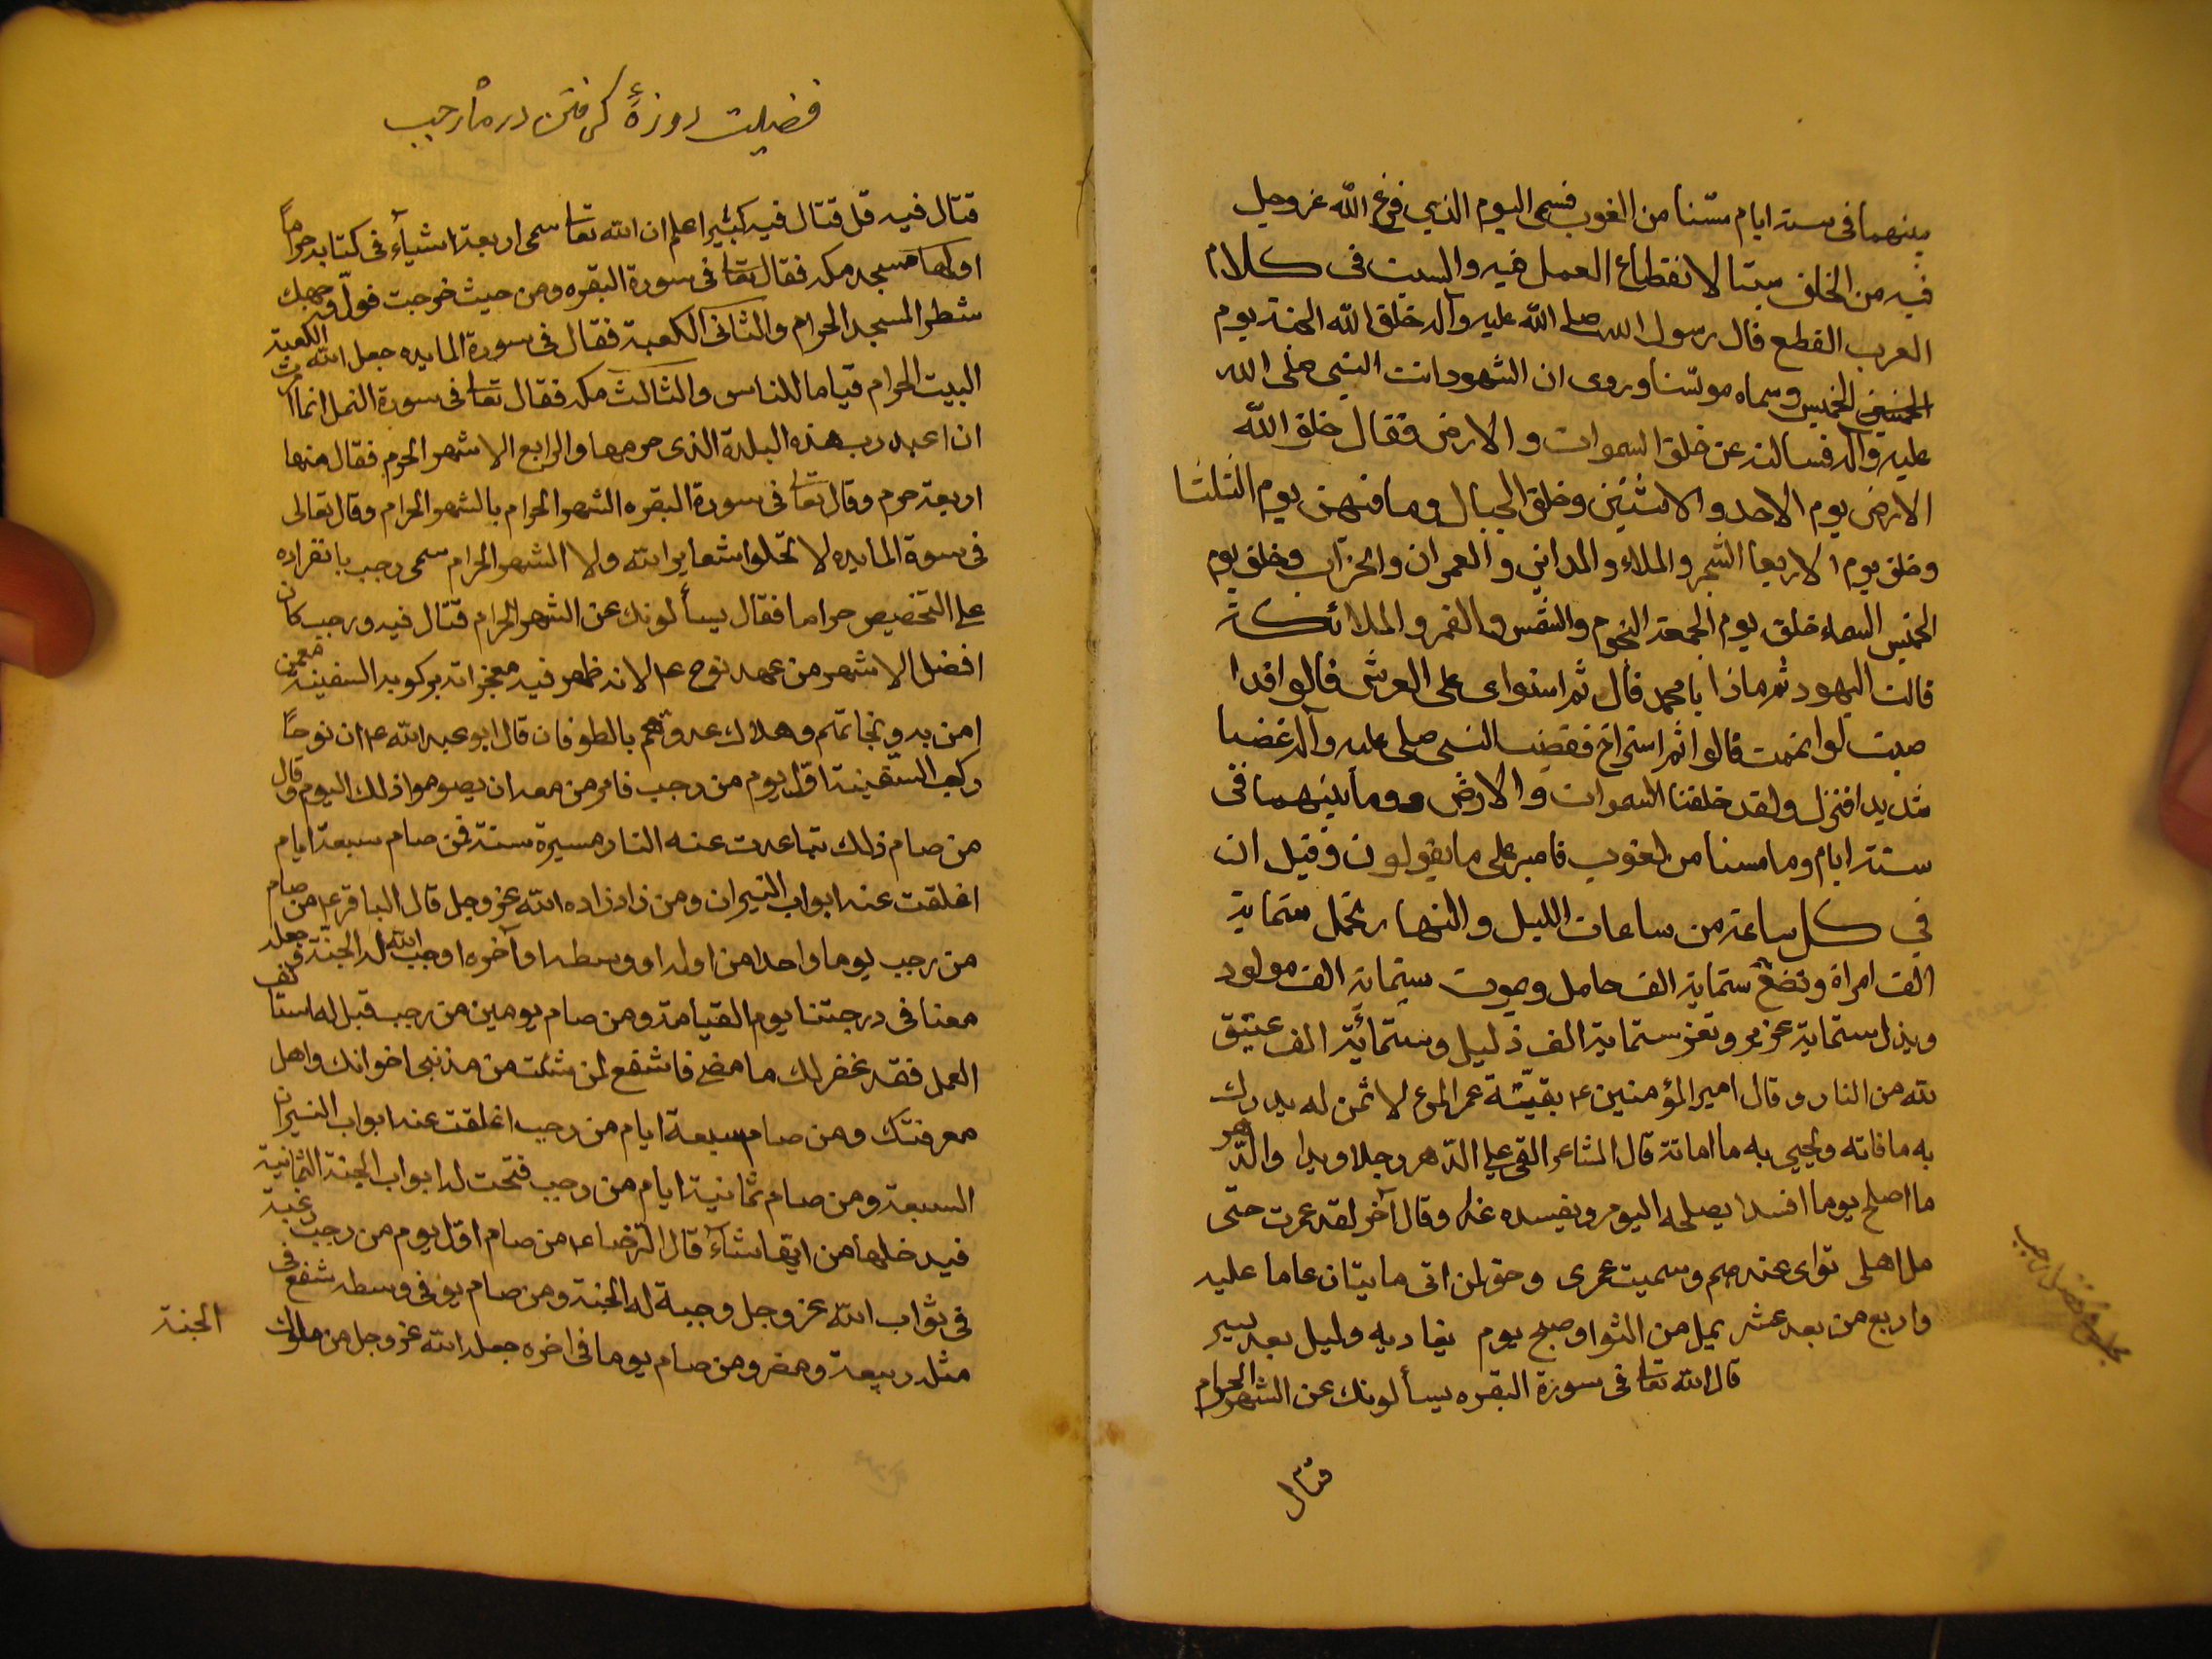 بينهما فى ستة ايام مسّنا من الغوب فسمى اليوم الذي فرغ الله عز وجل
فيه من الخلق سبتا لانقطاع العمل فيه والسبت فى كلام
العرب القطع قال رسول الله صلى الله عليه وآله خلق الله الجنة يوم
الخميس وسماه مونسا وروى ان اليهود اتت النبى صلى الله
عليه وآله فسالته عن خلق السموات والارض فقال خلق الله
الارض يوم الاحد والاثنين وخلق الجبال وما فيهن يوم الثلثا
وخلق يوم الاربعا الشجر والماء والمداين والعمران والخراب وخلق يوم
الخميس السماء خلق يوم الجمعة النجوم والشمس والقمر والملائكة
قالت اليهود ثم ماذا يا محمد قال ثم استواى على العرش قالوا قد ا
صبت لو اتممت قالوا ثم استراح فغضب النبى صلى عليه وآله غضبا
شديدا فنزل ولقد خلقنا السموات والارض وما بينهما فى
ستة ايام وما مسنا من لغوب فاصبر على ما يقولون وقيل ان
في كل ساعة من ساعات الليل والنهار تحمل ستماية
الف امراة وتضع ستماية الف حامل وموت ستماية الف مولود
ويذل ستماية عزيز وتعز ستماية الف ذليل وستمائة الف عتيق
لله من النار وقال امير المؤمنين ع بقيّة عمر المرء لا ثمن له يدرك
به ما فاته ويحيى به ما اماتة قال الشاعر القى علي الدّهر رجلا ويدا والدّهر
ما اصلح يوما افسدا يصلحه اليوم ويفسده غدا وقال آخر لقد عمرت حتى
مل اهلى ثواى عندهم وسميت عمرى وحق لمن اتى مايتان عاما عليه
واربع من بعد عشر يمل من الثوا وصبح يوم يغاديه وليل بعد يسير
قال الله تعا فى سورة البقره يسألونك عن الشهر الحرام
قتال
مجلس فى فضل رجب
فضيلت روزهٔ گرفتن در ماه رجب
قتال فيه قل قتال فيه كبير اعلم ان الله تعا سمى اربعة اشيآء فى كتابه حراماً
اولها مسجد مكه فقال تعا فى سورة البقره ومن حيث خرجت فولّ وجهك
شطر المسجد الحرام والثانى الكعبة فقال فى سورة المايده جعل الله الكعبة
البيت الحرام قياما للناس والثالث مكه فقال تعا فى سورة النمل انما امرت
ان اعبد رب هذه البلدة الذى حرمها والرابع الاشهر الحرم فقال منها
اربعة حرم وقال تعا فى سورة البقره الشهر الحرام بالشهر الحرام وقال تعالى
فى سوة المايده لا تحلوا شعاير الله ولا الشهر الحرام سمى رجب بانفراده
على التخصيص حراما فقال يسألونك عن الشهر الحرام قتال فيه ورجب كان
افضل الاشهر من عهد نوح ع لانه ظهر فيه معجزاته بركوبه السفينة مع من
امن به ونجاتهم وهلاك عدوهم بالطوفان قال ابو عبد الله ع ان نوحاً
ركب السّفينة اوّل يوم من رجب فامر من معه ان يصوموا ذلك اليوم وقال
من صام ذلك تباعدت عنه النار مسيرة سنة فمن صام سبعة ايام
اغلقت عنه ابواب النيران ومن زاد زاده الله عز وجل قال الباقر ع من صام
من رجب يوما واحدا من اوله او وسطه او آخره اوجب الله له الجنّة وجعله
معنا فى درجتنا يوم القيامة ومن صام يومين من رجب قيل له استانف
العمل فقد غفر لك ما مضى فاشفع لمن شئت من مذنبى اخوانك واهل
معرفتك ومن صام سبعة ايام من رجب اغلقت عنه ابواب النيران
السبعة ومن صام ثمانية ايام من رجب فتحت له ابواب الجنة الثمانية
فيدخلها من ايّها شآء قال الرّضا ع من صام اوّل يوم من رجب رغبة
فى ثواب الله عز وجل وجبة له الجنة ومن صام يو فى وسطه شفع فى
مثل ربيعة ومضر ومن صام يوما فى اخره جعله الله عز وجل من ملوك
الجنة